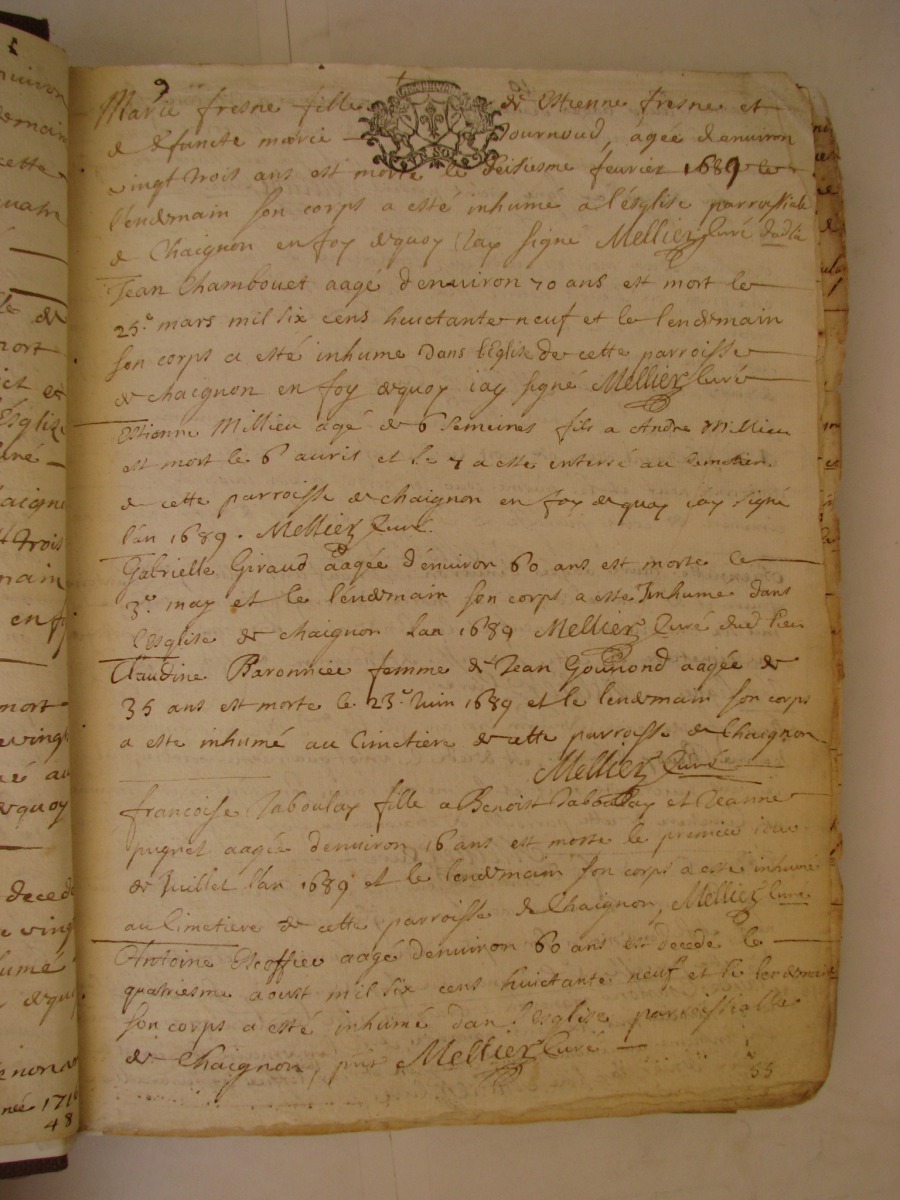 9
Marie fresne fille de Estienne fresne et
de defuncte marie Journoud, agée denuiron
vingt trois ans est morte le seisiesme feurier 1689 le
lendemain son corps a esté inhumé a l'église parroissiale
de Chaignon en foy dequoy jay signé Mellier Curé
Jean Chambouet aagé d'enuiron 70 ans est mort le
25e mars mil six cens huictante neuf et le lendemain
son corps a esté inhume dans l'Eglise de cette parroisse
de chaignon en foy dequoy iay signé Mellier Curé
Estienne Millieu agé de 6 semeines fils a Andre Millieu
est mort le 6 auril et le 7 a esté enterré au Cemetiere
de cette parroisse de chaignon en foy de quoy iay signé
l'an 1689. Mellier Curé.
Gabrielle Giraud aagée d'enuiron 60 ans est morte le
3e may et le lendemain son corps a esté Inhume dans
l'esglise de chaignon Lan 1689 Mellier Curé dud lieu
Claudine Baronnier femme de Jean Gounond aagée de
35 ans est morte le 23e Iuin 1689 et le lendemain son corps
a este inhumé au Cimetiere de cette parroisse de Chaignon
Mellier Curé
francoise Taboulay fille a Benoist Taboulay et Jeanne
pugnet aagée denuiron 16 ans est morte le premier iour
de Juillet l'an 1689 et le lendemain son corps a esté inhumé
au Cimetiere de cette parroisse de Chaignon, Mellier Curé
Antoine Escoffier aagé denuiron 60 ans est decedé le
quatriesme aoust mil six cens huictante neuf et le lendemain
son corps a esté inhumé dan l'esglise parroissialle
de Chaignon, Mellier Curé
55
decede
inhumé
née 171
48